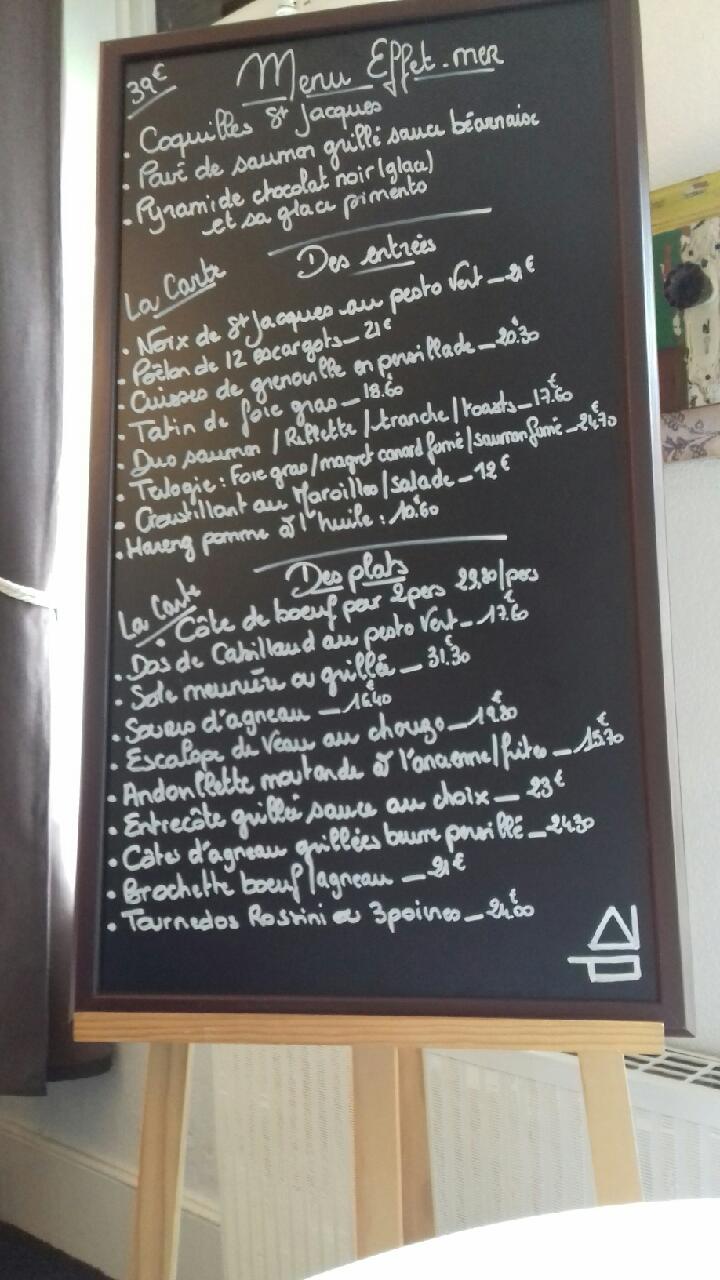 39€ Menu Effet-mer
• Coquilles St Jacques
• Pavé de saumon grillé sauce béarnaise
• Pyramide chocolat noir (glace)
et sa glace pimento
La Carte Des entrées
• Noix de St Jacques au pesto Vert - 21€
• Poêlon de 12 escargots - 21€
• Cuisses de grenouille en persillade - 20.30€
• Tatin de foie gras - 18.60€
• Duo saumon / Rillette / tranche / toasts - 17.60€
• Trilogie: Foie gras / magret canard fumé / saumon fumé - 24.70€
• Croustillant au Maroilles / salade - 12€
• Hareng pomme à l'huile : 10.60€
La Carte Des plats
• Côte de boeuf par 2 pers 29,80/pers
• Dos de Cabillaud au pesto Vert - 17.60€
• Sole meunière ou grillée - 31.30€
• Souris d'agneau - 16.40€
• Escalope de Veau au chorizo - 19.80€
• Andouillette moutarde à l'ancienne / frites - 15.70€
• Entrecôte grillée sauce au choix - 23€
• Côtes d'agneau grillées beurre persillé - 24.30
• Brochette boeuf / agneau - 21€
• Tournedos Rossini ou 3 poivres - 24.00€